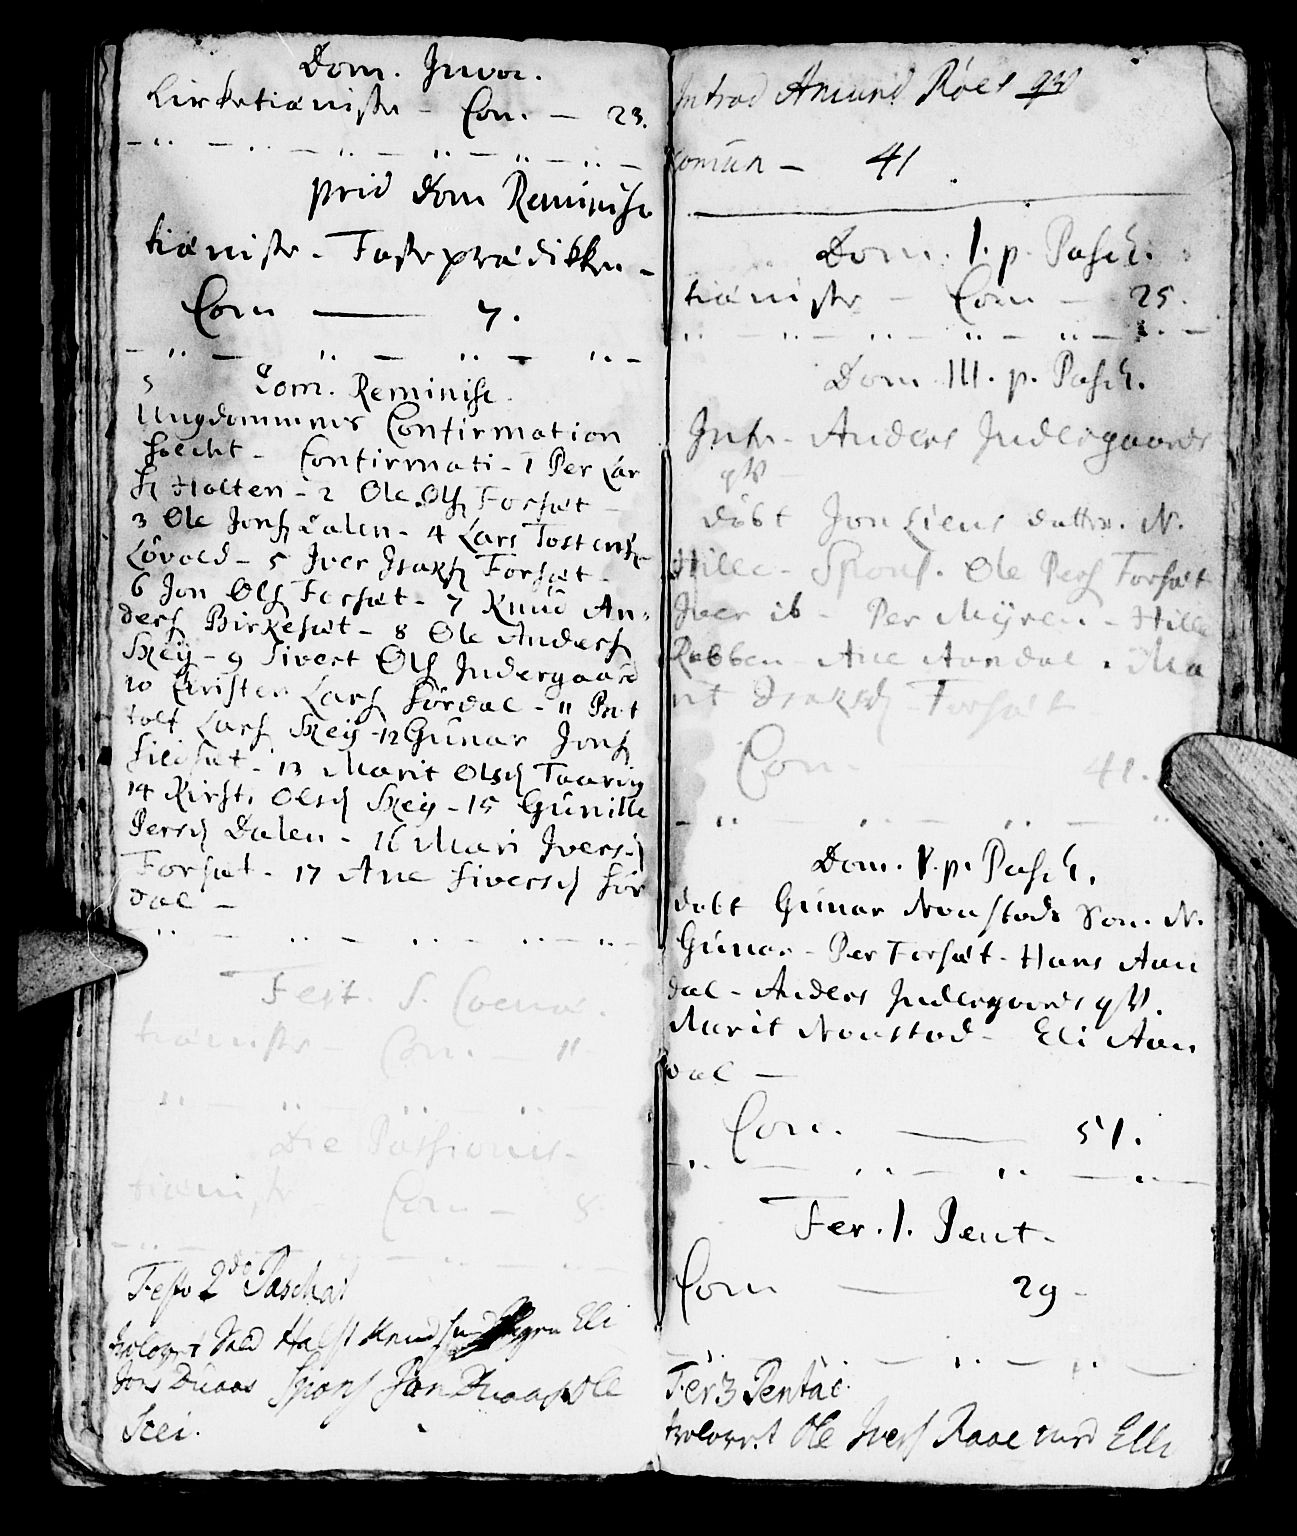 Dom. Invoc.
Kirketieniste - Com. - 23.
prid Dom Reminisc
tieniste - Fasteprædikken -
Com — 7.
Dom. Reminisc.
Ungdommens Confirmation
skeeht - Confirmati - 1 Per Lar
s Holten - 2 Ole Ols Forsæt -
3 Ole Jons Dalen - 4 Lars Tostens
Løvold - 5 Iver Isaks Forsæt -
6 Jon Ols Forsæt - 7 Knud An-
ders Birkesæt - 8 Ole Anders
Skeij - 9 Sivert Ols Indergaard
10 Christen Lars Sørdal - 11 Bot
tolf Lars Skeij - 12 Gunar Jons
Silisæt - 13 Marit Olsd Taarvig
14 Kirsti Olsd Skeij - 15 Gunille
Persd Dalen - 16 Mari Iversd
Forsæt - 17 Ane Siversd Sør
dal -
Fest. S. Coenæ.
tieniste - Com. - 11 -
Die Passionis -
tieniste - Com - 8.
Festo 2do Paschat
trolovet Halst Knud Eli
Jons Duaas Spons Jon Duaas Ole
Skei.
Introd Amund Røes qv
Comun - 41
Dom. I. p. Pasch.
tieniste - Com - 25.
Dom III. p. Pasch.
Intr - Anders Indergaards
qv -
døbt Jon Liens datter. N.
Hille - Spons. Ole Pers Forsæt
Iver ib - Per Myren - Hille
Rabben - Ane Aandal. Ma
rit Isaksd Forsæt
Com - 41.
Dom. V. p. Pasch.
døbt Gunar Nonstads Son. N.
Gunar - Per Forsæt - Hans Aan
dal - Anders Indergaards qv.
Marit Nonstad - Eli Aan
dal -
Com. — 51.
Fer. 1. Pent.
Com — 29 -
Fer 3 Pentac.
trolovet Ole Ivers Raae med Elli